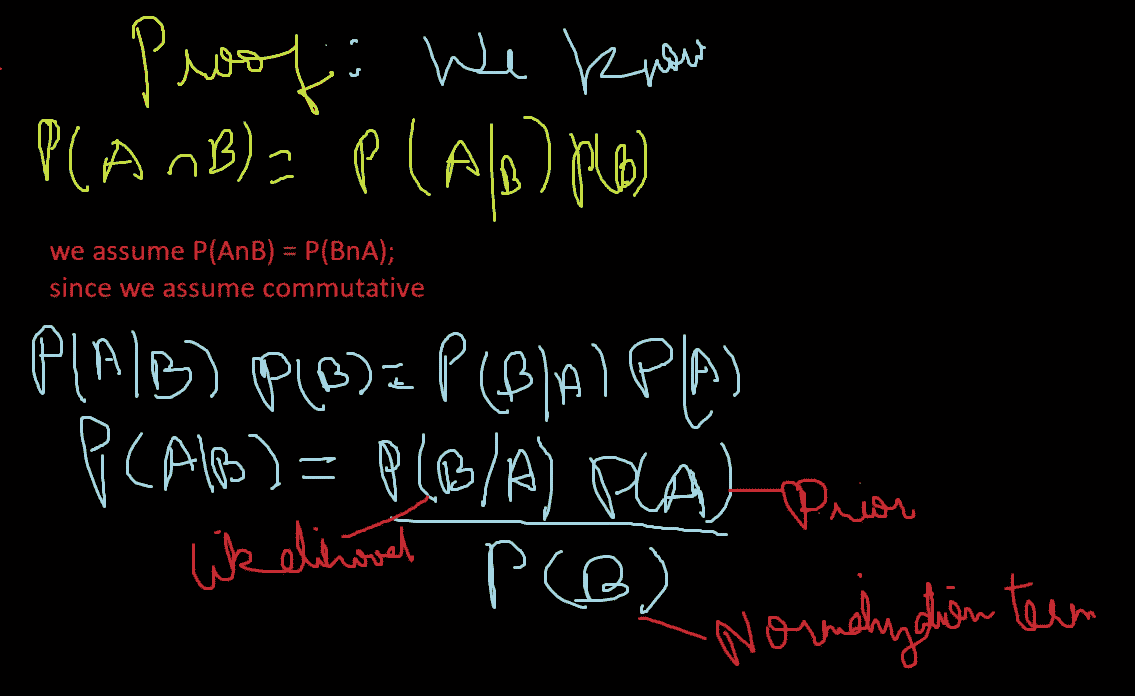 Proof: We Know
P(A∩B) = P(A|B) P(B)
we assume P(AnB) = P(BnA);
since we assume commutative
P(A|B) P(B) = P(B|A) P(A)
P(A|B) = P(B/A) P(A)
Prior
Likelihood
P(B)
Normalization term